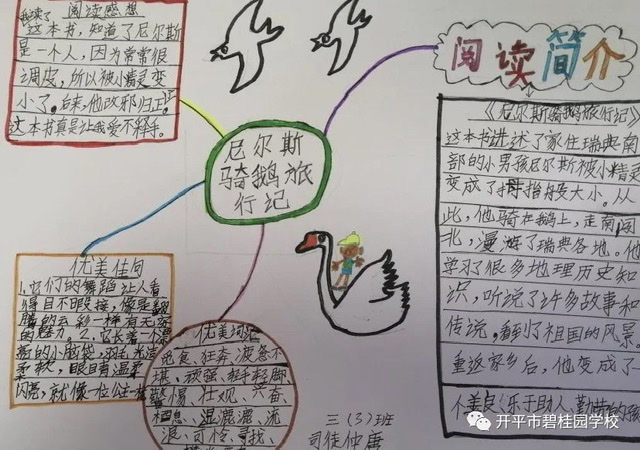 阅读感想
我读了
这本书，知道了尼尔斯
是一个人，因为常常很
调皮，所以被小精灵变
小了。后来，他改邪归正。
这本书真是让我爱不释手。
尼尔斯
骑鹅旅
行记
阅读简介
《尼尔斯骑鹅旅行记》
这本书讲述了家住瑞典南
部的小男孩尼尔斯被小精灵
变成了拇指般大小。从
此，他骑在鹅上，走南闯
北，漫游了瑞典各地，他
学习了很多地理历史知
识，听说了许多故事和
传说。看到了祖国的风景。
重返家乡后，他变成了一
个善良、乐于助人、勤劳的孩
优美佳句
1.它们的舞蹈让人看
得目不暇接，像是翻
腾的云彩一样有无穷
的魅力。2.它长着一个
的小脑袋，羽毛光洁
柔软，眼目青温柔
闪亮，就像一位公主一样
优美词汇
觅食、狂奔、疲惫不
堪、顽强、轻手轻脚、
骄傲、壮观、兴奋、
栖息、湿漉漉、流
浪、可怜、寻找、
三（3）班
司徒仲唐
开平市碧桂园学校